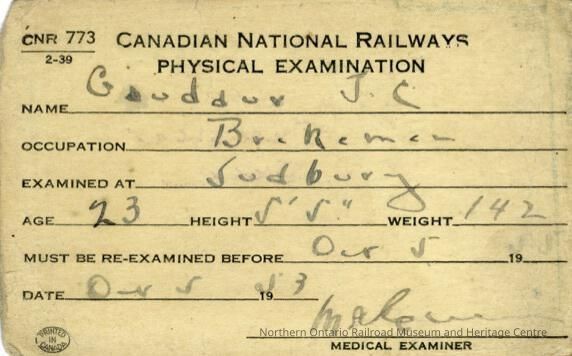 CNR 773 CANADIAN NATIONAL RAILWAYS
2-39 PHYSICAL EXAMINATION
NAME J. C
OCCUPATION Brakeman
EXAMINED AT Sudbury
AGE 23 HEIGHT 5'5" WEIGHT 142
MUST BE RE-EXAMINED BEFORE 5 19
DATE 5 1953
Northern Ontario Railroad Museum and Heritage Centre
MEDICAL EXAMINER
PRINTED IN CANADA